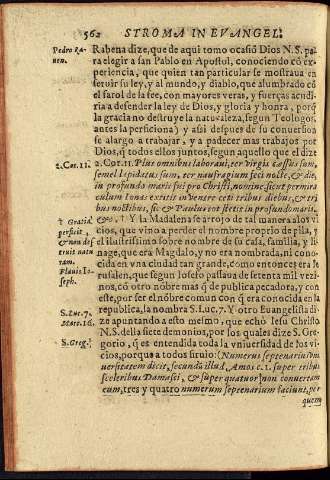 562 STROMA IN EVANGEL:
Pedro Ra-
uen.
Rabena dize, que de aqui tomo ocasió Dios N.S. pa
ra elegir a san Pablo en Apostul, conociendo có ex
periencia, que quien tan particular se mostraua en
seruir su ley, y al mundo, y diablo, que alumbrado có
el farol de la fee, con mayores veras, y fuerças acudi
ria a defender la ley de Dios, y gloria y honra, porq̃
la gracia no destruye la naturaleza, segun Teologos,
antes la perficiona) y assi despues de su conuersió
se alargo a trabajar, y a padecer mas trabajos por
Dios, q̃ todos ellos juntos, segun aquello que el dize
2. Cor. 11.
2. Cor. 11. Plus omnibus laboraui, ter virgis cæsus sum,
semel lapidatus sum, ter naufragium feci nocte, & die,
in profundo maris fui pro Christi, nomine, sicut permira
culum Ionas existis in venere ceti tribus diebus, & tri
bus noctibus, sic & Paulus vot fletit in profundo maris,
† Gratia
perficit,
& non des
truit natu
ram.
Flauio Io-
seph.
&c. † Y la Madalena se arrojo de tal manera a los vi
cios, que vino a perder el nombre proprio de pila, y
el illustrissimo sobre nombre de su casa, familia, y li
nage, que era Magdalo, y no era nombrada, ni cono
cida en vna ciudad tan grande, como entonces era Ie
rusalen, que segun Iosefo passaua de setenta mil vezi-
nos, có otro nóbre mas q̃ de publica pecadora, y con
este, por ser el nóbre comun con q̃ era conocida en la
S. Luc. 7.
Marc. 16.
republica, la nombra S. Luc. 7. Y otro Euangelista di
ze apuntando a esto mesmo, que echó Iesu Christo
N.S. della siete demonios, por los quales dize S. Gre-
S. Greg.
gorio, q̃ es entendida toda la vniuersidad de los vi
cios, porque a todos siruio: (Numerus septenarius om
ueritatem dicit, secundũ illud, Amos c. 1. super tribus
sceleribus Damasci, & super quatuor non conuertam
eum, tres y quatro numerum septenarium faciunt, per
quem